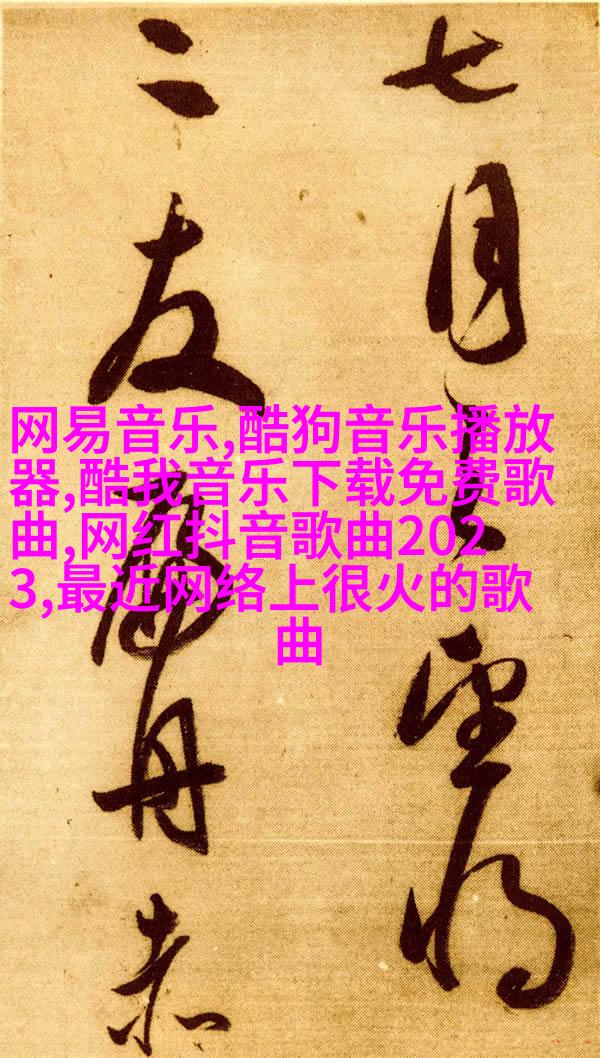 七月望将
二友丹赤
网易音乐,酷狗音乐播放
器,酷我音乐下载免费歌
曲,网红抖音歌曲202
3,最近网络上很火的歌
曲